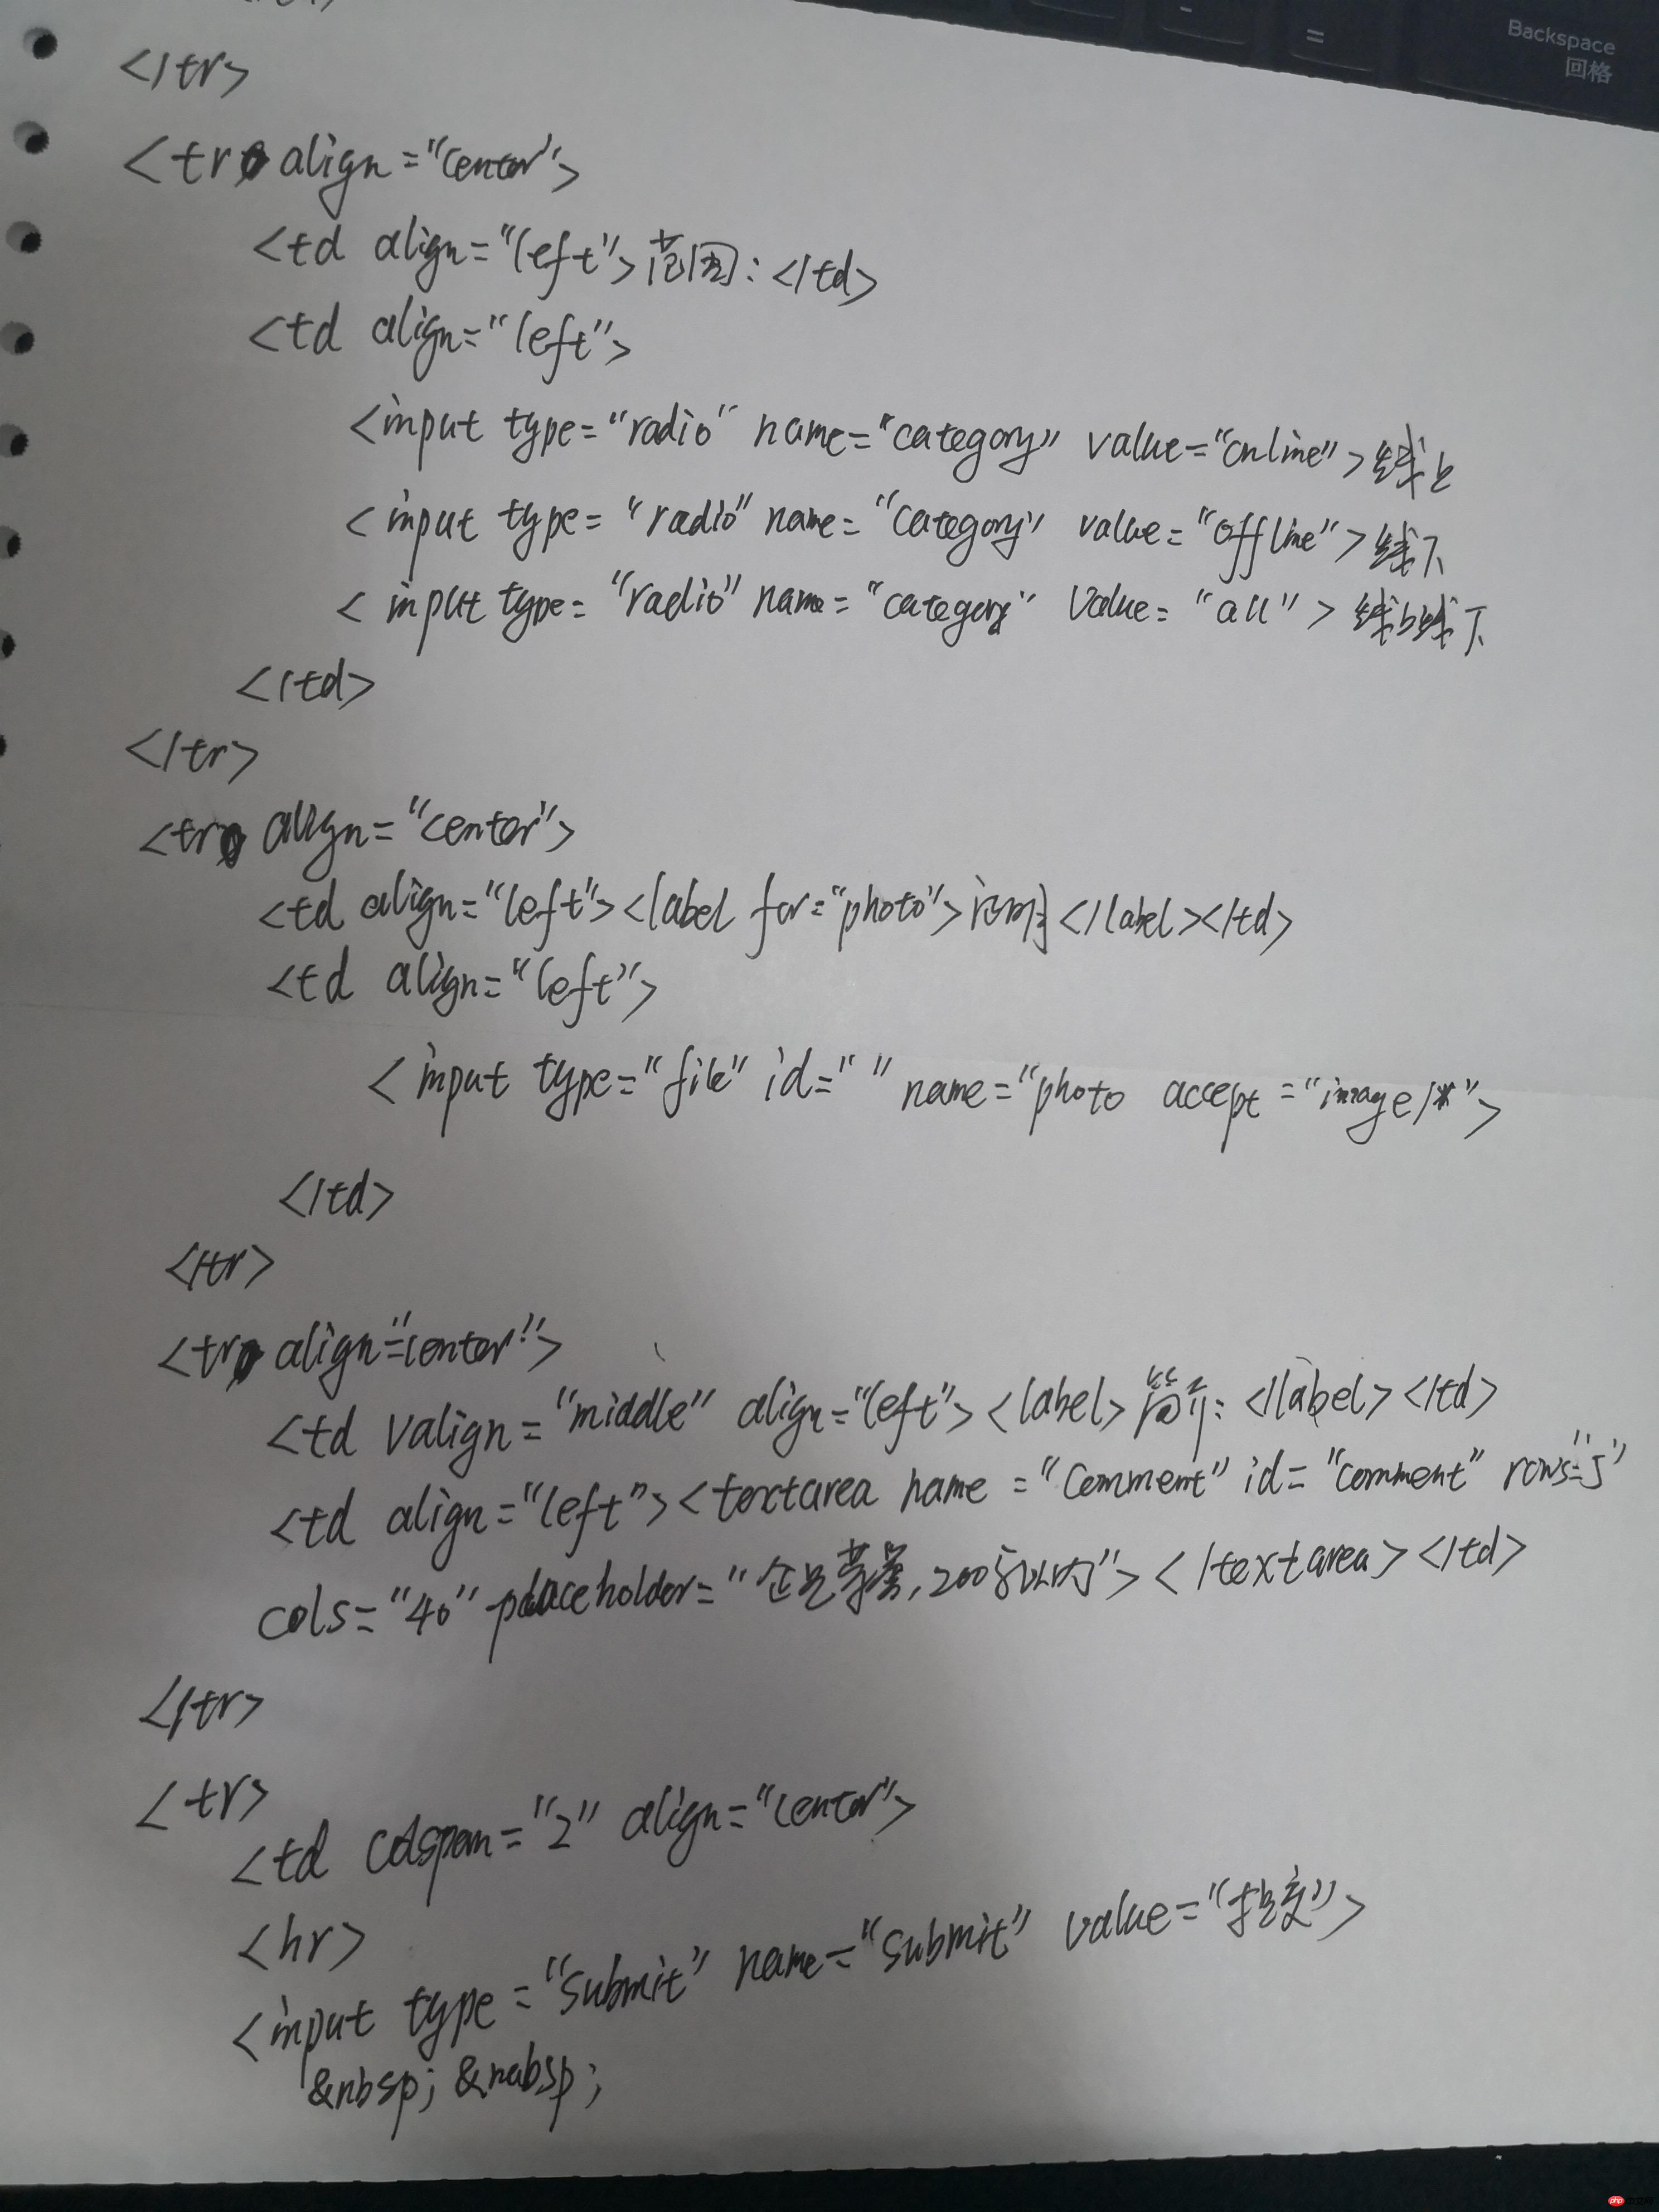 Backspace
回格
-
=
</tr>
<tr align="center">
<td align="left">范围:</td>
<td align="left">
<input type="radio" name="category" value="online">线上
<input type="radio" name="category" value="offline">线下
<input type="radio" name="category" value="all">线上线下
</td>
</tr>
<tr align="center">
<td align="left"><label for="photo"></label></td>
<td align="left">
<input type="file" id=" " name="photo accept="image/*">
</td>
</tr>
<tr align="center">
<td valign="middle" align="left"><label>简介:</label></td>
<td align="left"><textarea name="comment" id="comment" rows="5"
cols="40" placeholder=",200字以内"></textarea></td>
</tr>
<tr>
<td colspan="2" align="center">
<hr>
<input type="submit" name="submit" value="提交">
&nbsp; &nabsp;
php